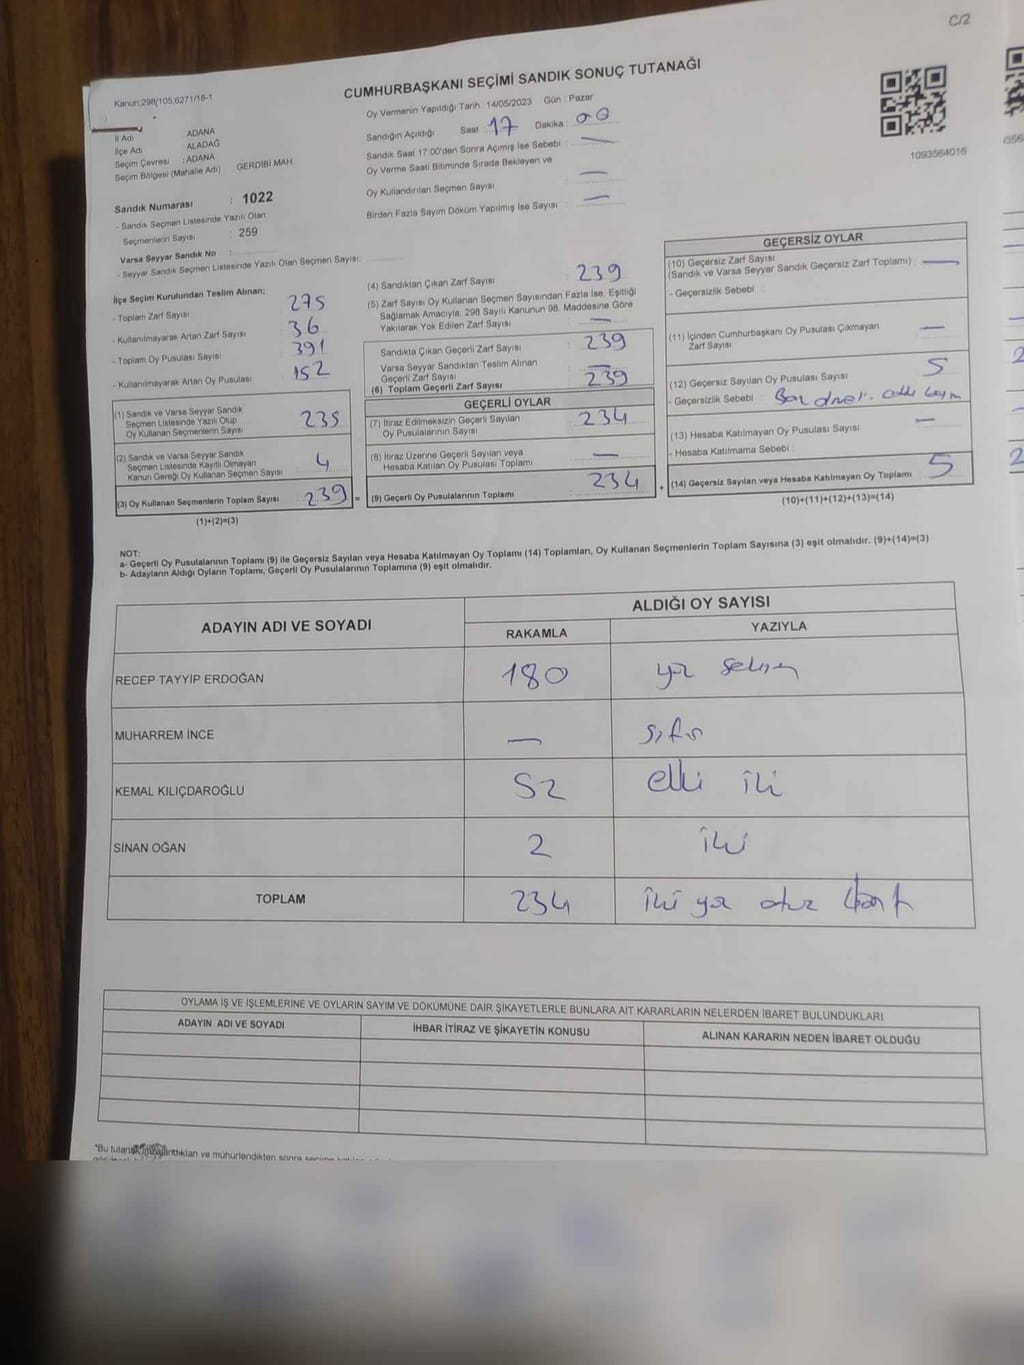 C/2
CUMHURBAŞKANI SEÇİMİ SANDIK SONUÇ TUTANAĞI
Kanun;298(105;6271/18-1
İl Adı ADANA
İlçe Adı ALADAĞ
Seçim Çevresi : ADANA
Seçim Bölgesi (Mahalle Adı) GERDİBİ MAH.
Sandık Numarası : 1022
- Sandık Seçmen Listesinde Yazılı Olan
Seçmenlerin Sayısı : 259
Varsa Seyyar Sandık No :
- Seyyar Sandık Seçmen Listesinde Yazılı Olan Seçmen Sayısı:
Oy Vermenin Yapıldığı Tarih : 14/05/2023 Gün : Pazar
Sandığın Açıldığı Saat : 17 Dakika : 00
Sandık Saat 17:00'den Sonra Açılmış İse Sebebi : —
Oy Verme Saati Bitiminde Sırada Bekleyen ve
Oy Kullandırılan Seçmen Sayısı : —
Birden Fazla Sayım Döküm Yapılmış İse Sayısı : —
1093564016
İlçe Seçim Kurulundan Teslim Alınan;
- Toplam Zarf Sayısı : 275
- Kullanılmayarak Artan Zarf Sayısı : 36
- Toplam Oy Pusulası Sayısı : 391
- Kullanılmayarak Artan Oy Pusulası : 152
(1) Sandık ve Varsa Seyyar Sandık
Seçmen Listesinde Yazılı Olup
Oy Kullanan Seçmenlerin Sayısı : 235
(2) Sandık ve Varsa Seyyar Sandık
Seçmen Listesinde Kayıtlı Olmayan
Kanun Gereği Oy Kullanan Seçmen Sayısı : 4
(3) Oy Kullanan Seçmenlerin Toplam Sayısı : 239 =
(1)+(2)=(3)
(4) Sandıktan Çıkan Zarf Sayısı : 239
(5) Zarf Sayısı Oy Kullanan Seçmen Sayısından Fazla İse, Eşitliği
Sağlamak Amacıyla, 298 Sayılı Kanunun 98. Maddesine Göre
Yakılarak Yok Edilen Zarf Sayısı : —
Sandıkta Çıkan Geçerli Zarf Sayısı : 239
Varsa Seyyar Sandıktan Teslim Alınan
Geçerli Zarf Sayısı : —
(6) Toplam Geçerli Zarf Sayısı : 239
GEÇERLİ OYLAR
(7) İtiraz Edilmeksizin Geçerli Sayılan
Oy Pusulalarının Sayısı : 234
(8) İtiraz Üzerine Geçerli Sayılan veya
Hesaba Katılan Oy Pusulası Toplamı : —
(9) Geçerli Oy Pusulalarının Toplamı : 234 +
GEÇERSİZ OYLAR
(10) Geçersiz Zarf Sayısı
(Sandık ve Varsa Seyyar Sandık Geçersiz Zarf Toplamı) : —
- Geçersizlik Sebebi :
(11) İçinden Cumhurbaşkanı Oy Pusulası Çıkmayan
Zarf Sayısı : —
(12) Geçersiz Sayılan Oy Pusulası Sayısı : 5
- Geçersizlik Sebebi :
(13) Hesaba Katılmayan Oy Pusulası Sayısı : —
- Hesaba Katılmama Sebebi :
(14) Geçersiz Sayılan veya Hesaba Katılmayan Oy Toplamı : 5
(10)+(11)+(12)+(13)=(14)
NOT:
a- Geçerli Oy Pusulalarının Toplamı (9) ile Geçersiz Sayılan veya Hesaba Katılmayan Oy Toplamı (14) Toplamları, Oy Kullanan Seçmenlerin Toplam Sayısına (3) eşit olmalıdır. (9)+(14)=(3)
b- Adayların Aldığı Oyların Toplamı, Geçerli Oy Pusulalarının Toplamına (9) eşit olmalıdır.
ADAYIN ADI VE SOYADI
ALDIĞI OY SAYISI
RAKAMLA YAZIYLA
RECEP TAYYİP ERDOĞAN 180 yüz seksen
MUHARREM İNCE — sıfır
KEMAL KILIÇDAROĞLU 52 elli iki
SİNAN OĞAN 2 iki
TOPLAM 234 iki yüz otuz dört
OYLAMA İŞ VE İŞLEMLERİNE VE OYLARIN SAYIM VE DÖKÜMÜNE DAİR ŞİKAYETLERLE BUNLARA AİT KARARLARIN NELERDEN İBARET BULUNDUKLARI
ADAYIN ADI VE SOYADI İHBAR İTİRAZ VE ŞİKAYETİN KONUSU ALINAN KARARIN NEDEN İBARET OLDUĞU
*Bu tutanak ve mühürlendikten sonra